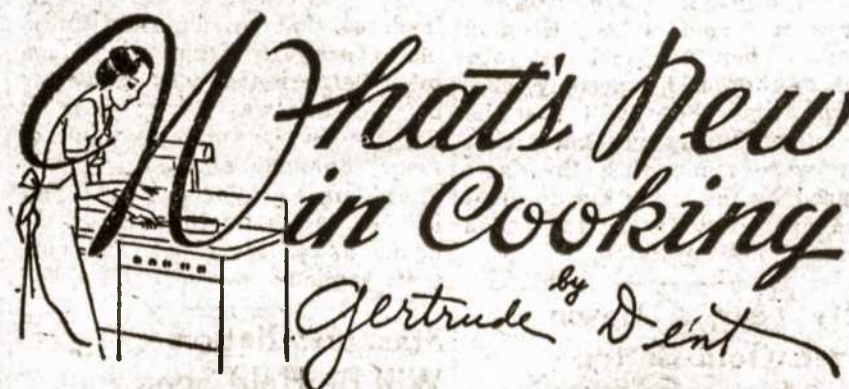 What's New
in Cooking
by
Gertrude Dent